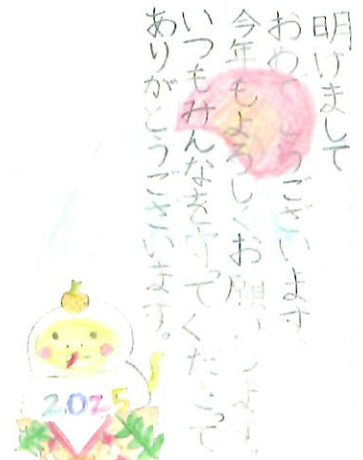 明けまして
おめでとうございます。
今年もよろしくお願いします。
いつもみんなを守ってくださって
ありがとうございます。
2025